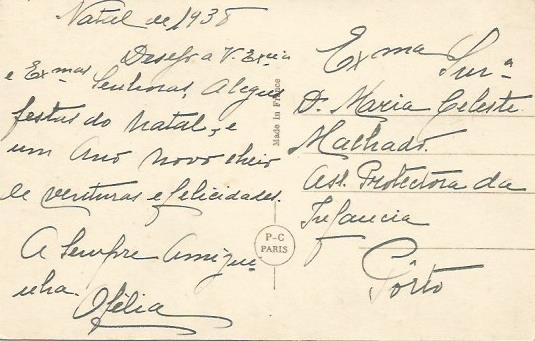 Natal de 1938
Desejo a V. Excia
e Exmas Senhoras, Alegres
festas do Natal, e
um Ano Novo cheio
de venturas e felicidades.
A Sempre Amigui
nha.
Ofélia
Made in France
P-C
PARIS
Exma Snrª
D. Maria Celeste
Machado.
Ass. Protectora da
Infancia
Pôrto